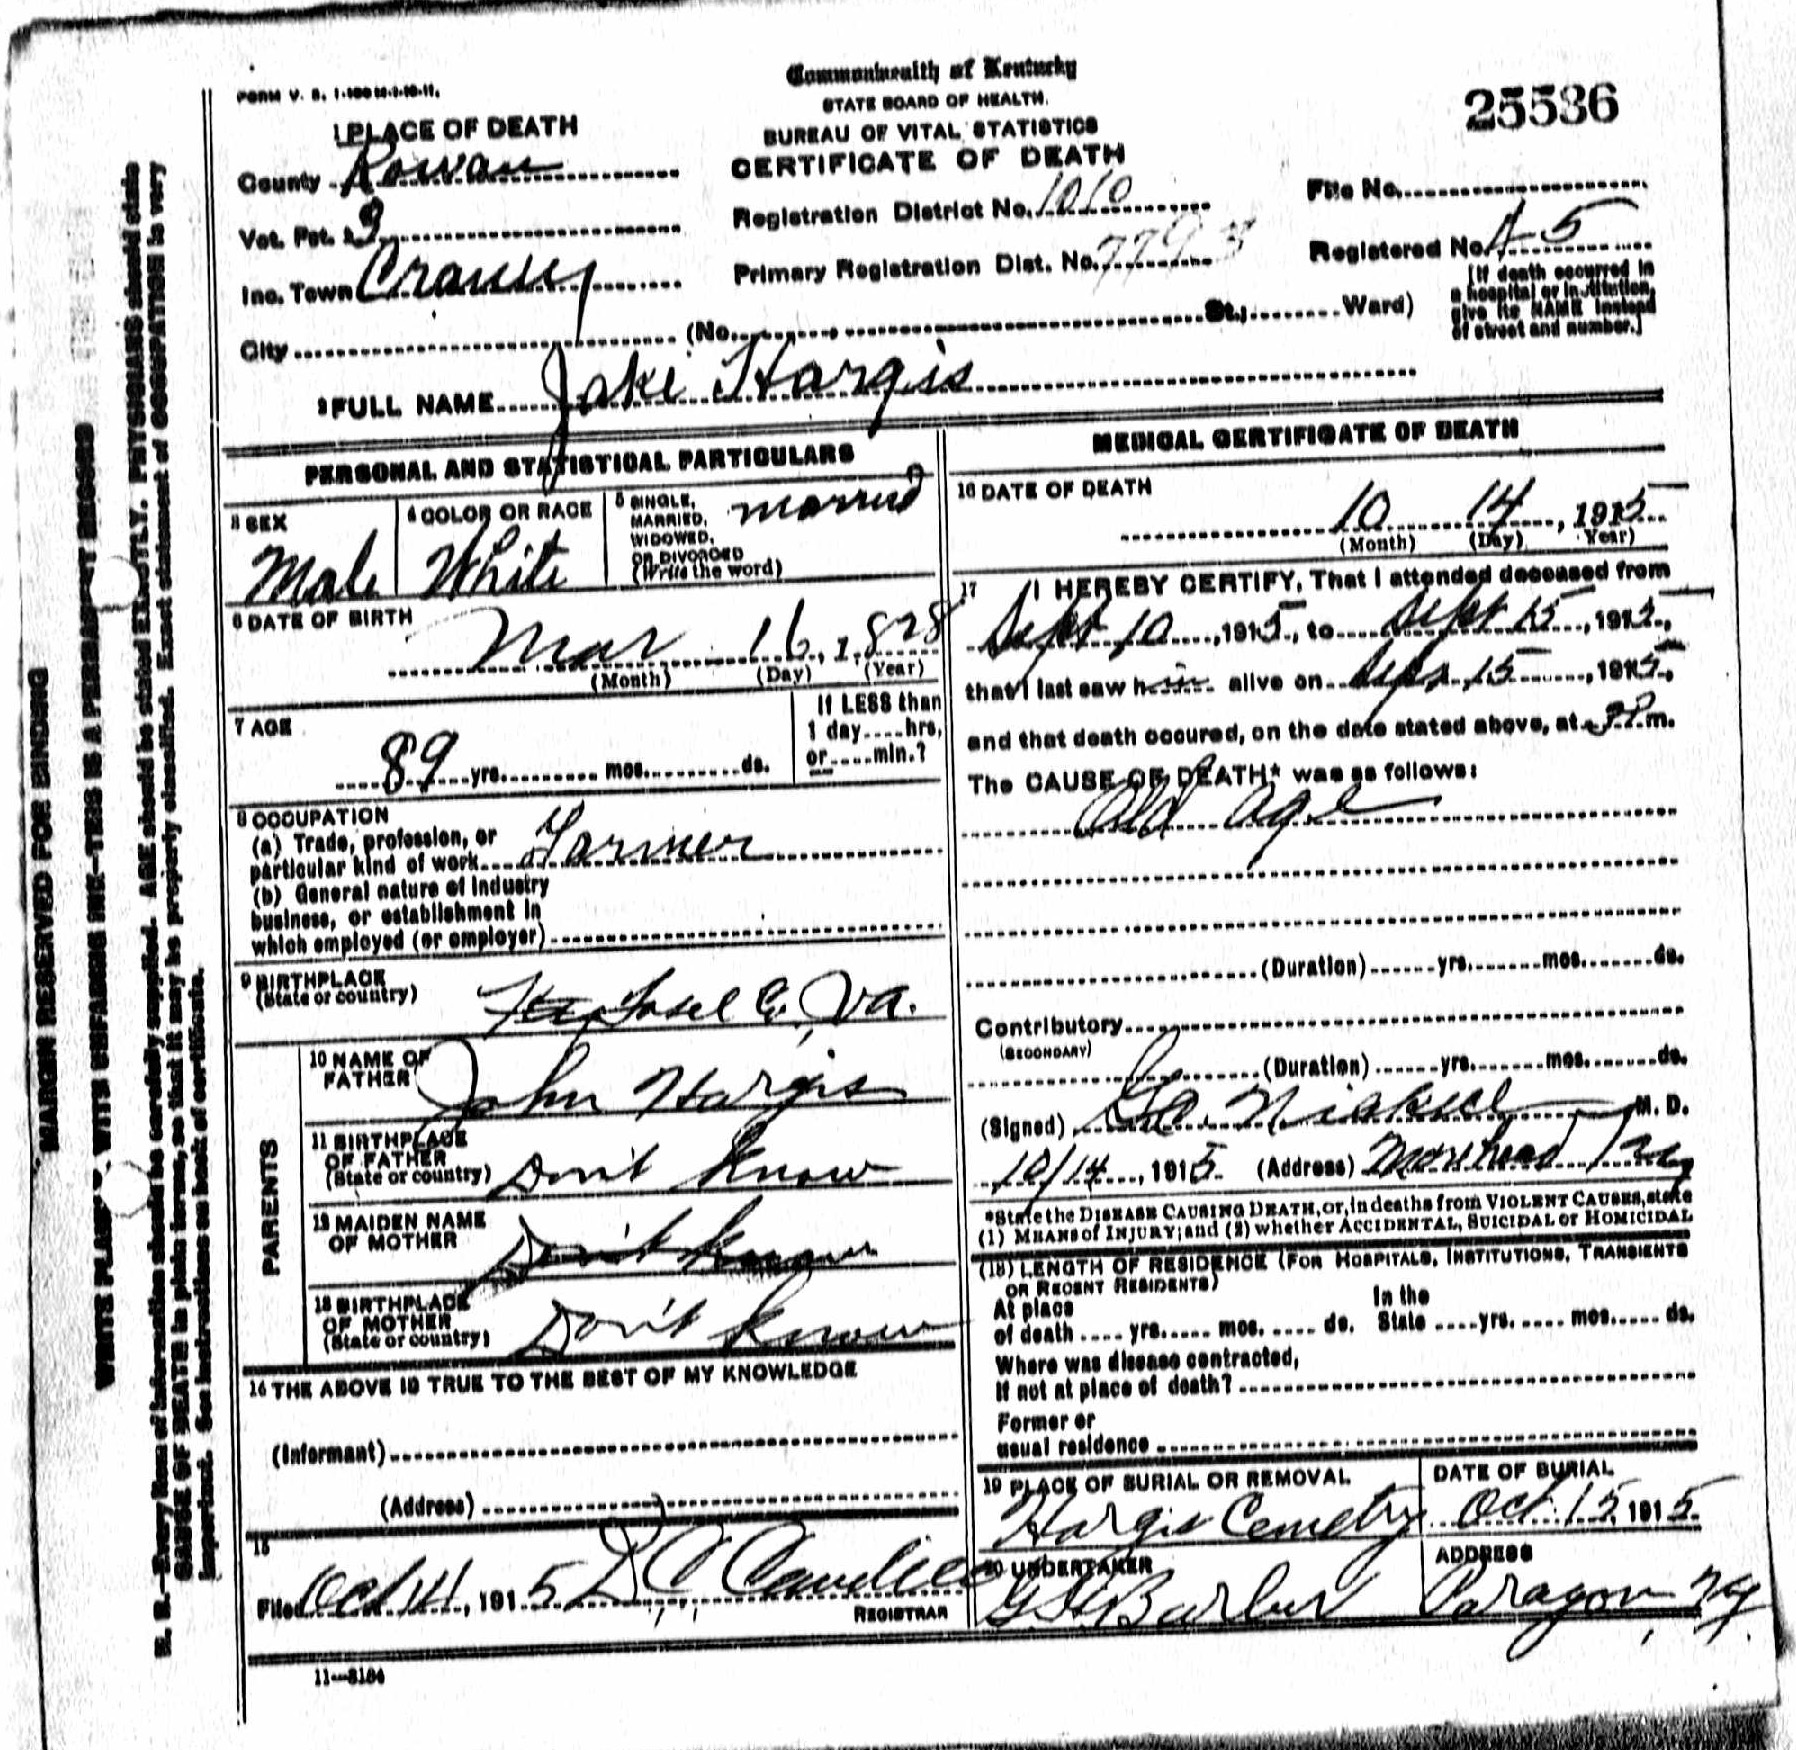 FORM V. S. 1-100 M-3-10-11.
Commonwealth of Kentucky
STATE BOARD OF HEALTH.
BUREAU OF VITAL STATISTICS
CERTIFICATE OF DEATH
25536
1 PLACE OF DEATH
County Rowan
Vot. Pct. 3
Inc. Town Craney
City (No. St.; Ward)
Registration District No. 1010
Primary Registration Dist. No. 7793
File No.
Registered No. 45
[If death occurred in
a hospital or institution,
give its NAME instead
of street and number.]
2 FULL NAME Jake Hargis
PERSONAL AND STATISTICAL PARTICULARS
3 SEX
Male
4 COLOR OR RACE
White
5 SINGLE,
MARRIED,
WIDOWED,
OR DIVORCED
(Write the word)
married
6 DATE OF BIRTH
Mar 16, 1828
(Month) (Day) (Year)
7 AGE
89 yrs. mos. ds.
If LESS than
1 day....hrs,
or....min.?
8 OCCUPATION
(a) Trade, profession, or
particular kind of work Farmer
(b) General nature of industry
business, or establishment in
which employed (or employer)
9 BIRTHPLACE
(State or country)
Co, Va.
PARENTS
10 NAME OF
FATHER
John Hargis
11 BIRTHPLACE
OF FATHER
(State or country) Don't Know
12 MAIDEN NAME
OF MOTHER
Don't Know
13 BIRTHPLACE
OF MOTHER
(State or country) Don't Know
14 THE ABOVE IS TRUE TO THE BEST OF MY KNOWLEDGE
(Informant)
(Address)
15
Filed Oct 14, 1915
REGISTRAR
11—3184
MEDICAL CERTIFICATE OF DEATH
16 DATE OF DEATH
10 14, 1915
(Month) (Day) Year)
17 I HEREBY CERTIFY, That I attended deceased from
Sept 10, 1915, to Sept 15, 1915,
that I last saw him alive on Sept 15, 1915,
and that death occured, on the date stated above, at P.m.
The CAUSE OF DEATH* was as follows:
Old age
(Duration) yrs. mos. ds.
Contributory
(SECONDARY)
(Duration) yrs. mos. ds.
(Signed) Nickell M. D.
10/14, 1915 (Address) Morehead Ky
*State the DISEASE CAUSING DEATH, or, in deaths from VIOLENT CAUSES, state
(1) MEANS of INJURY; and (2) whether ACCIDENTAL, SUICIDAL or HOMICIDAL
(18) LENGTH OF RESIDENCE (FOR HOSPITALS, INSTITUTIONS, TRANSIENTS
OR RECENT RESIDENTS)
At place
of death .... yrs..... mos. .... ds.
In the
State ....yrs. .... mos..... ds.
Where was disease contracted,
if not at place of death?
Former or
usual residence
19 PLACE OF BURIAL OR REMOVAL
Hargis Cemetry
DATE OF BURIAL
Oct 15, 1915
20 UNDERTAKER
G H Barber
ADDRESS
Paragon, Ky.
MARGIN RESERVED FOR BINDING
WRITE PLAINLY, WITH UNFADING INK—THIS IS A PERMANENT RECORD
N. B.—Every item of information should be carefully supplied. AGE should be stated EXACTLY. PHYSICIANS should state
CAUSE OF DEATH in plain terms, so that it may be properly classified. Exact statement of OCCUPATION is very
important. See instructions on back of certificate.